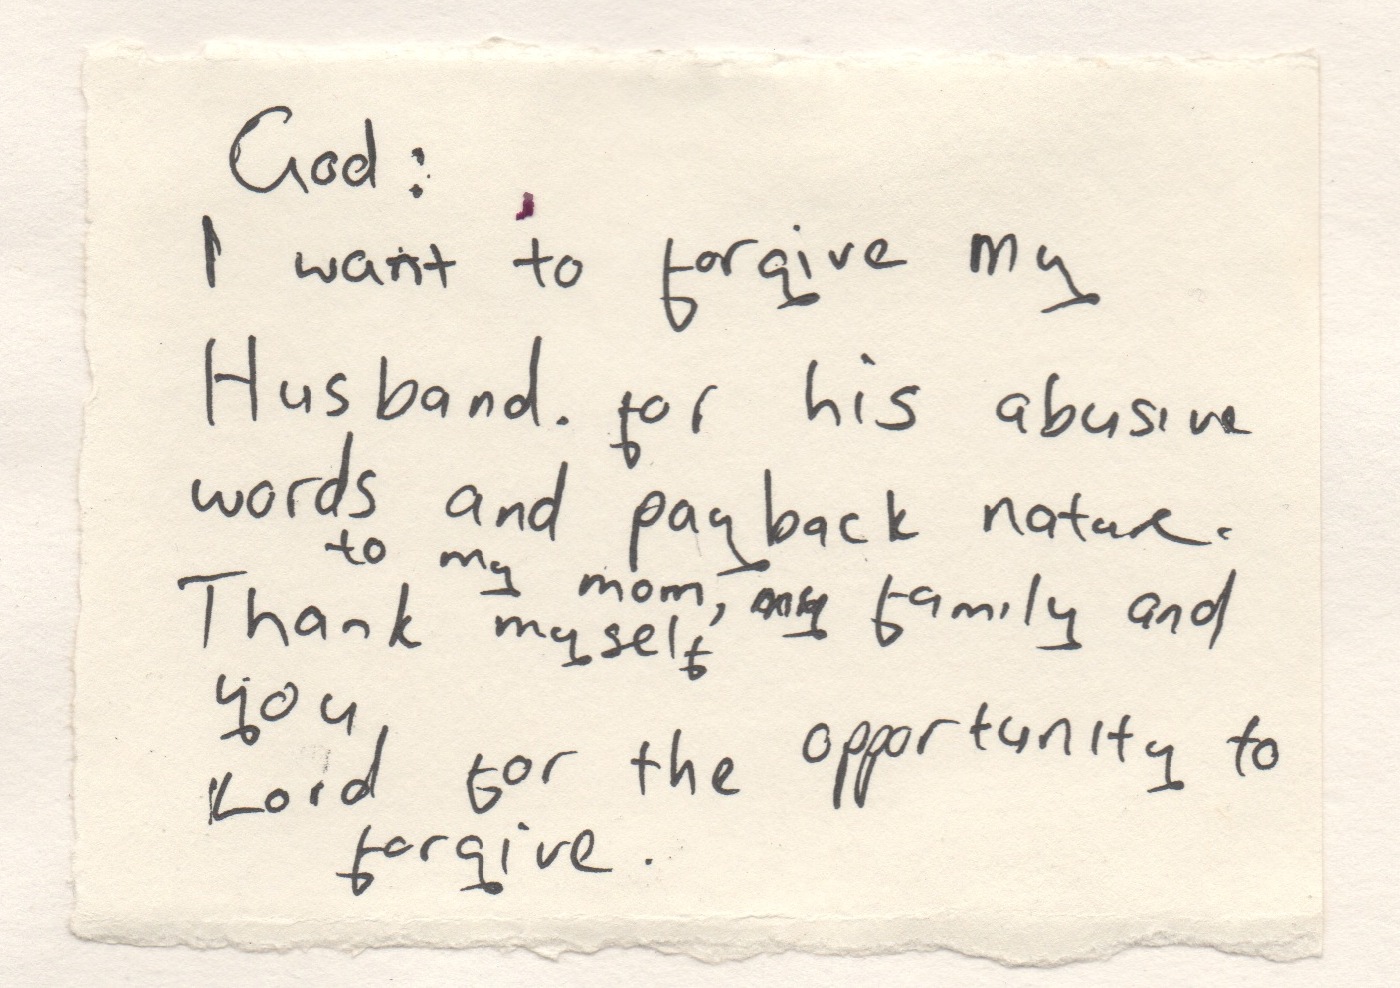 God:
I want to forgive my
Husband. for his abusive
words and payback nature.
to my mom, my family and
Thank myself
you
Lord for the opportunity to
forgive.